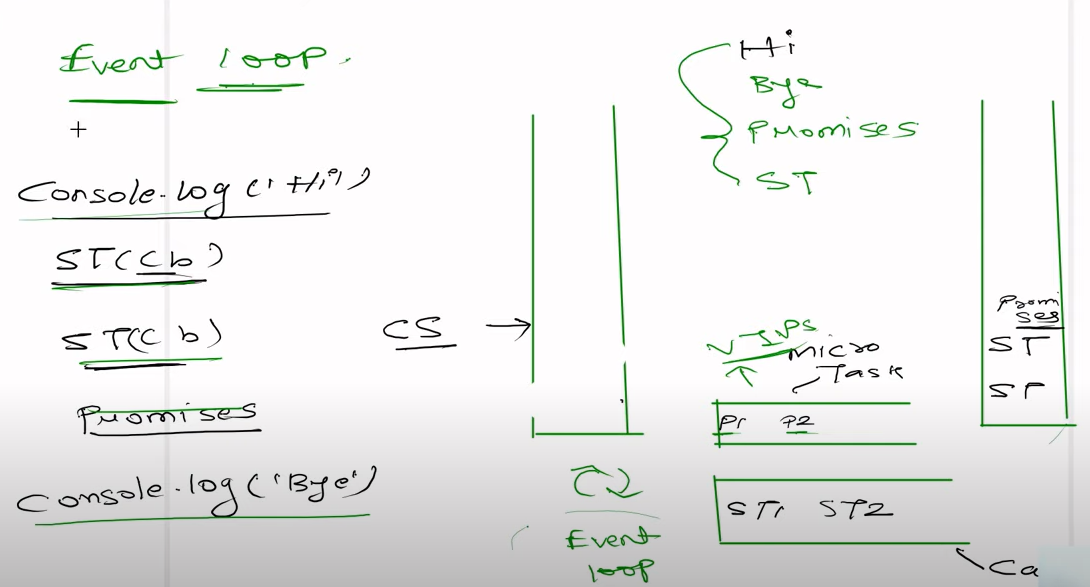 Event loop.
Console.log('Hi')
ST(Cb)
ST(Cb)
Promises
Console.log('Bye')
CS
Event
loop
Hi
Bye
Promises
ST
VIPS
Micro
Task
P1 P2
ST1 ST2
Ca
Promi
ses
ST
ST